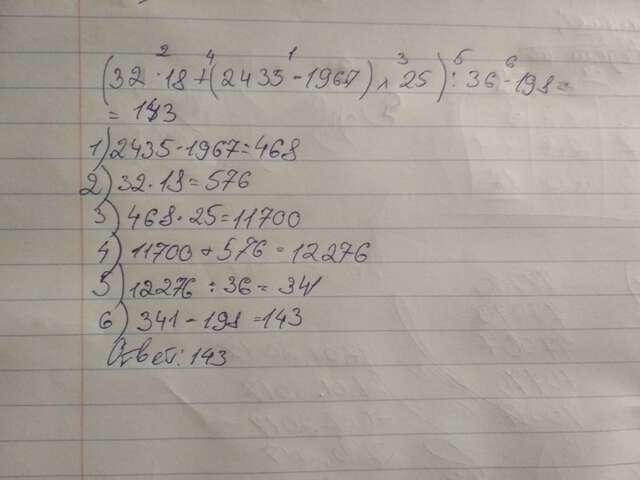 2 4 1 3 5 6
(32 · 18 + (2435 - 1967) × 25) : 36 - 198 =
= 143
1) 2435 - 1967 = 468
2) 32 · 18 = 576
3) 468 · 25 = 11700
4) 11700 + 576 = 12276
5) 12276 : 36 = 341
6) 341 - 198 = 143
Ответ: 143